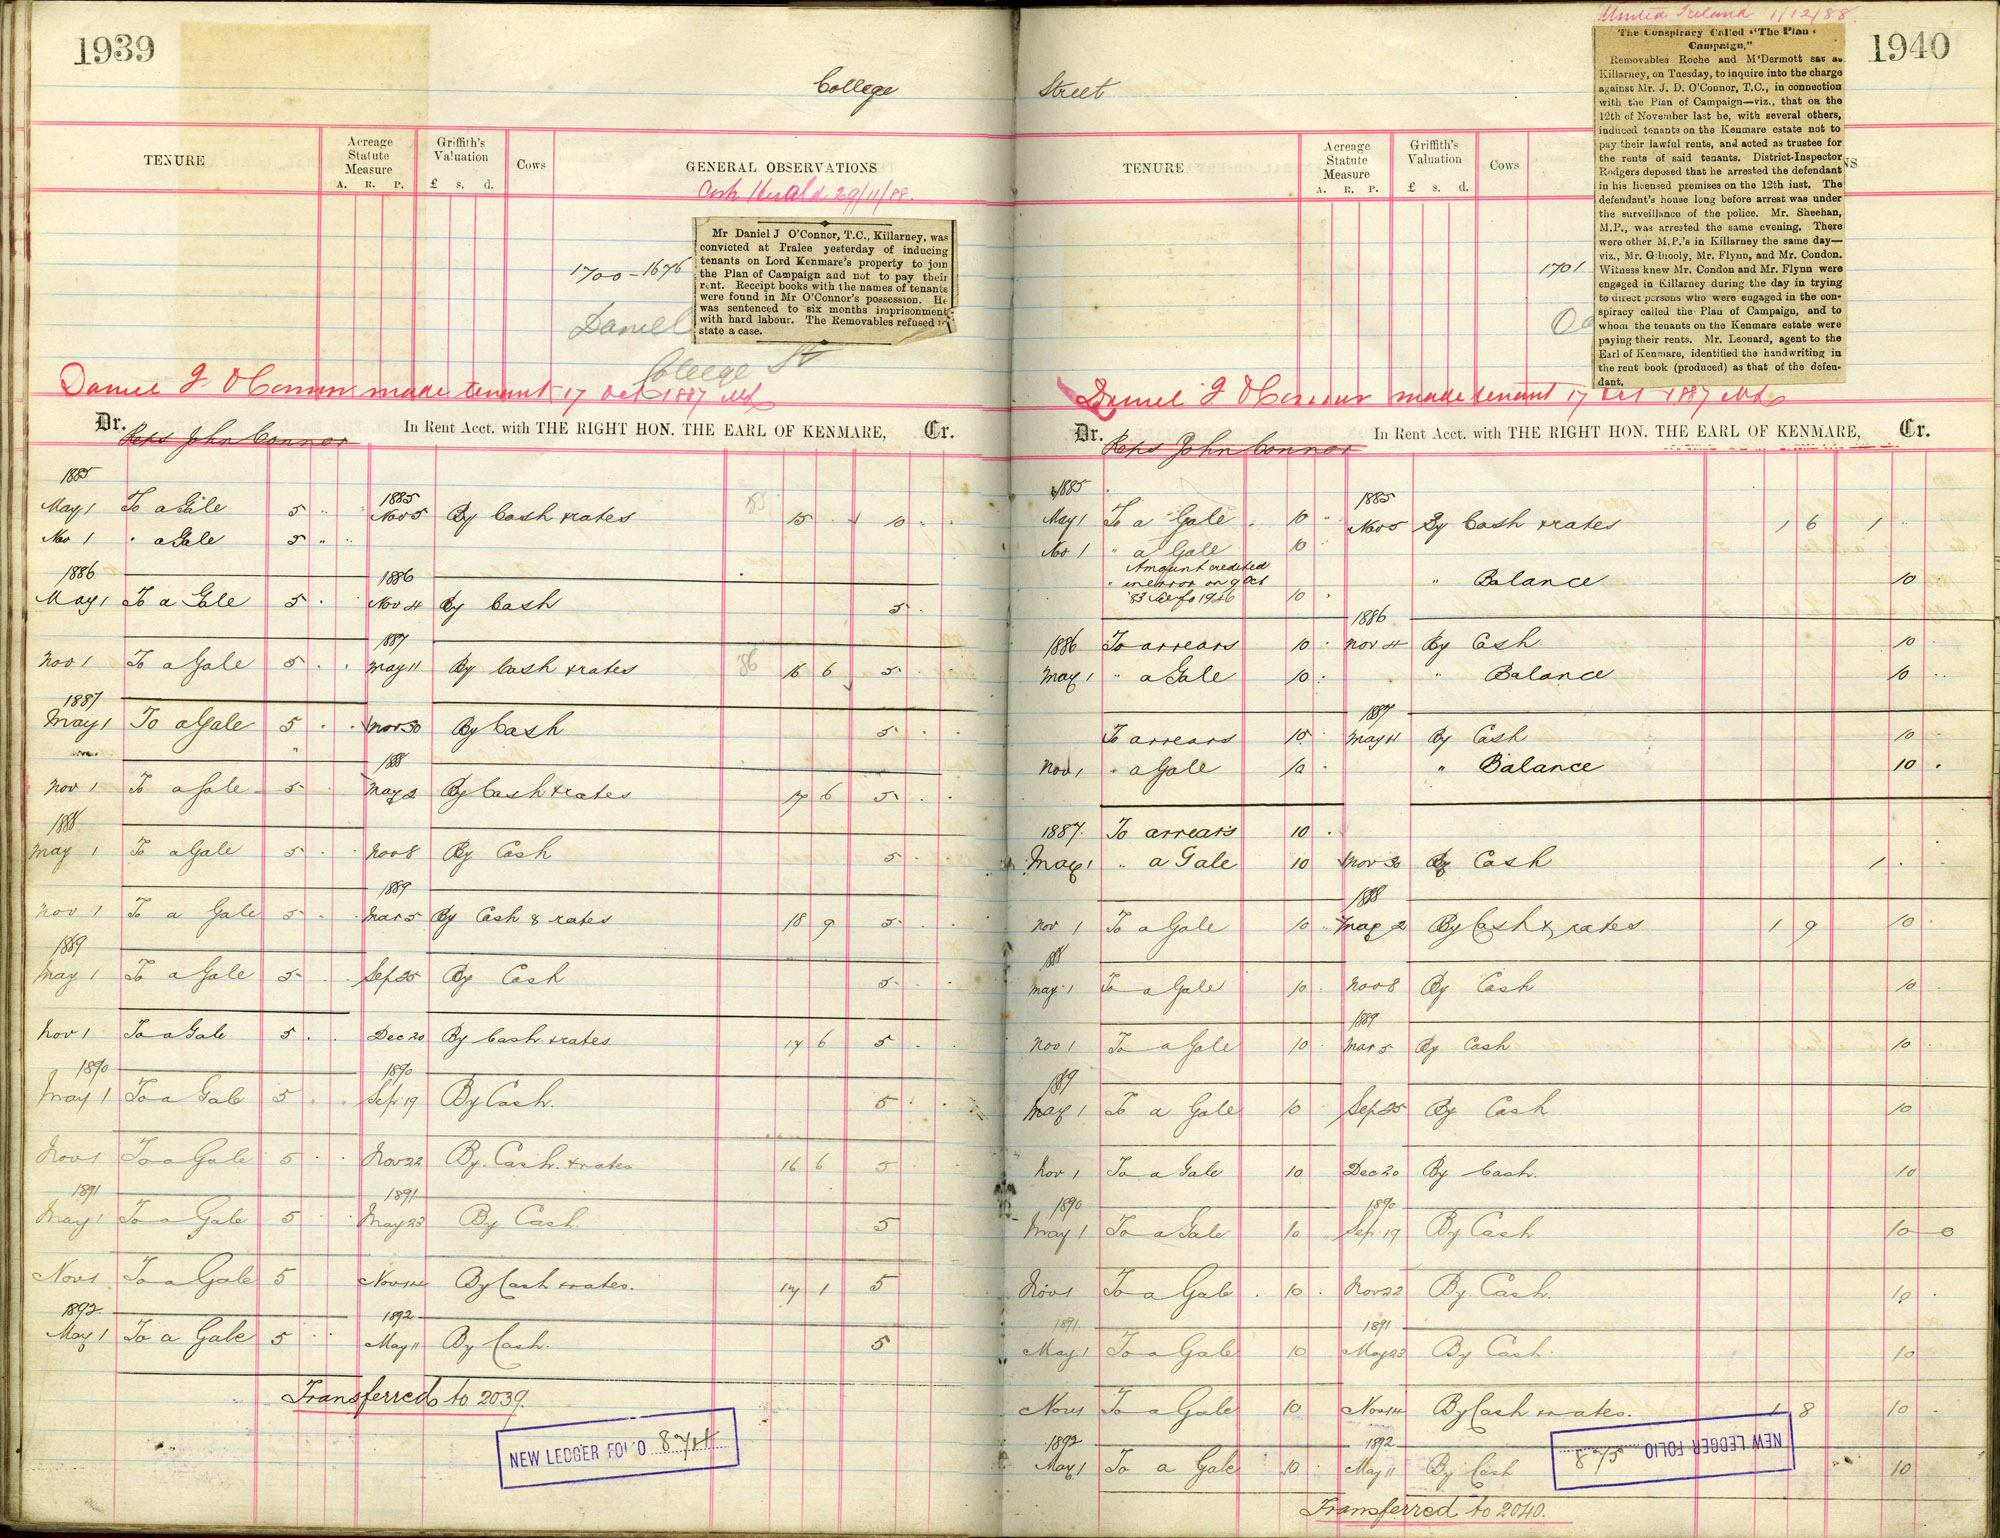 1939
College
TENURE
Acreage
Statute
Measure
A. R. P.
Griffith's
Valuation
£ s. d.
Cows
GENERAL OBSERVATIONS
Cork Herald 29/11/88.
Mr Daniel J O'Connor, T.C., Killarney, was
convicted at Tralee yesterday of inducing
tenants on Lord Kenmare's property to join
the Plan of Campaign and not to pay their
rent. Receipt books with the names of tenants
were found in Mr O'Connor's possession. He
was sentenced to six months imprisonment
with hard labour. The Removables refused to
state a case.
1700-1676
Daniel
College St
Daniel J O'Connor made tenant 17 Oct 1887
Dr. Reps John Connor In Rent Acct. with THE RIGHT HON. THE EARL OF KENMARE, Cr.
1885
May 1 To a Gale 5 " 1885 Nov 5 By Cash & rates 85 15 10
Nov 1 " a Gale 5 " "
1886 1886
May 1 To a Gale 5 Nov 4 By Cash 5
1887
Nov 1 To a Gale 5 May 11 By Cash & rates 86 16 6 5
1887
May 1 To a Gale 5 Nov 30 By Cash 5
1888
Nov 1 To a Gale 5 May 2 By Cash & rates 17 6 5
1888
May 1 To a Gale 5 Nov 8 By Cash 5
1889
Nov 1 To a Gale 5 Mar 5 By Cash & rates 18 9 5
1889
May 1 To a Gale 5 Sep 25 By Cash 5
Nov 1 To a Gale 5 Dec 20 By Cash & rates 17 6 5
1890 1890
May 1 To a Gale 5 Sep 19 By Cash. 5
Nov 1 To a Gale 5 Nov 22 By Cash. & rates 16 6 5
1891 1891
May 1 To a Gale 5 May 23 By Cash. 5
Nov 1 To a Gale 5 Nov 14 By Cash & rates. 17 1 5
1892 1892
May 1 To a Gale 5 May 11 By Cash. 5
Transferred to 2039.
NEW LEDGER FOLIO 874
United Ireland 1/12/88.
1940
Street
The Conspiracy Called "The Plan
Campaign."
Removables Roche and M'Dermott sat at
Killarney, on Tuesday, to inquire into the charge
against Mr. J. D. O'Connor, T.C., in connection
with the Plan of Campaign—viz., that on the
12th of November last he, with several others,
induced tenants on the Kenmare estate not to
pay their lawful rents, and acted as trustee for
the rents of said tenants. District-Inspector
Rodgers deposed that he arrested the defendant
in his licensed premises on the 12th inst. The
defendant's house long before arrest was under
the surveillance of the police. Mr. Sheehan,
M.P., was arrested the same evening. There
were other M.P.'s in Killarney the same day—
viz., Mr. Gilhooly, Mr. Flynn, and Mr. Condon.
Witness knew Mr. Condon and Mr. Flynn were
engaged in Killarney during the day in trying
to direct persons who were engaged in the con-
spiracy called the Plan of Campaign, and to
whom the tenants on the Kenmare estate were
paying their rents. Mr. Leonard, agent to the
Earl of Kenmare, identified the handwriting in
the rent book (produced) as that of the defen-
dant.
TENURE
Acreage
Statute
Measure
A. R. P.
Griffith's
Valuation
£ s. d.
Cows
NS
1701
Daniel J O'Connor made tenant 17 Oct 1887
Dr. Reps John Connor In Rent Acct. with THE RIGHT HON. THE EARL OF KENMARE, Cr.
1885 1885
May 1 To a Gale 10 " Nov 5 By Cash & rates 1 6 1 "
Nov 1 " a Gale 10
Amount credited
" in error on 9 Oct " Balance 10
'83 See fo 1946 10
1886
1886 To arrears 10 Nov 4 By Cash 10
May 1 " a Gale 10 " Balance 10
1887
To arrears 10 May 11 By Cash 10
Nov 1 " a Gale 10 " Balance 10
1887. To arrears 10
May 1 " a Gale 10 Nov 30 By Cash 1
1888
Nov 1 To a Gale 10 May 2 By Cash & rates 1 9 10
1888
May 1 To a Gale 10 Nov 8 By Cash 10
1889
Nov 1 To a Gale 10 Mar 5 By Cash 10
1889
May 1 To a Gale 10 Sep 25 By Cash 10
Nov 1 To a Gale 10 Dec 20 By Cash. 10
1890 1890
May 1 To a Gale 10 Sep 19 By Cash 10 0
Nov 1 To a Gale 10 Nov 22 By Cash. 10
1891 1891
May 1 To a Gale 10 May 23 By Cash 10
Nov 1 To a Gale 10 Nov 14 By Cash & rates. 1 8 10
1892 1892
May 1 To a Gale 10 May 11 By Cash 10
NEW LEDGER FOLIO 875
Transferred to 2040.